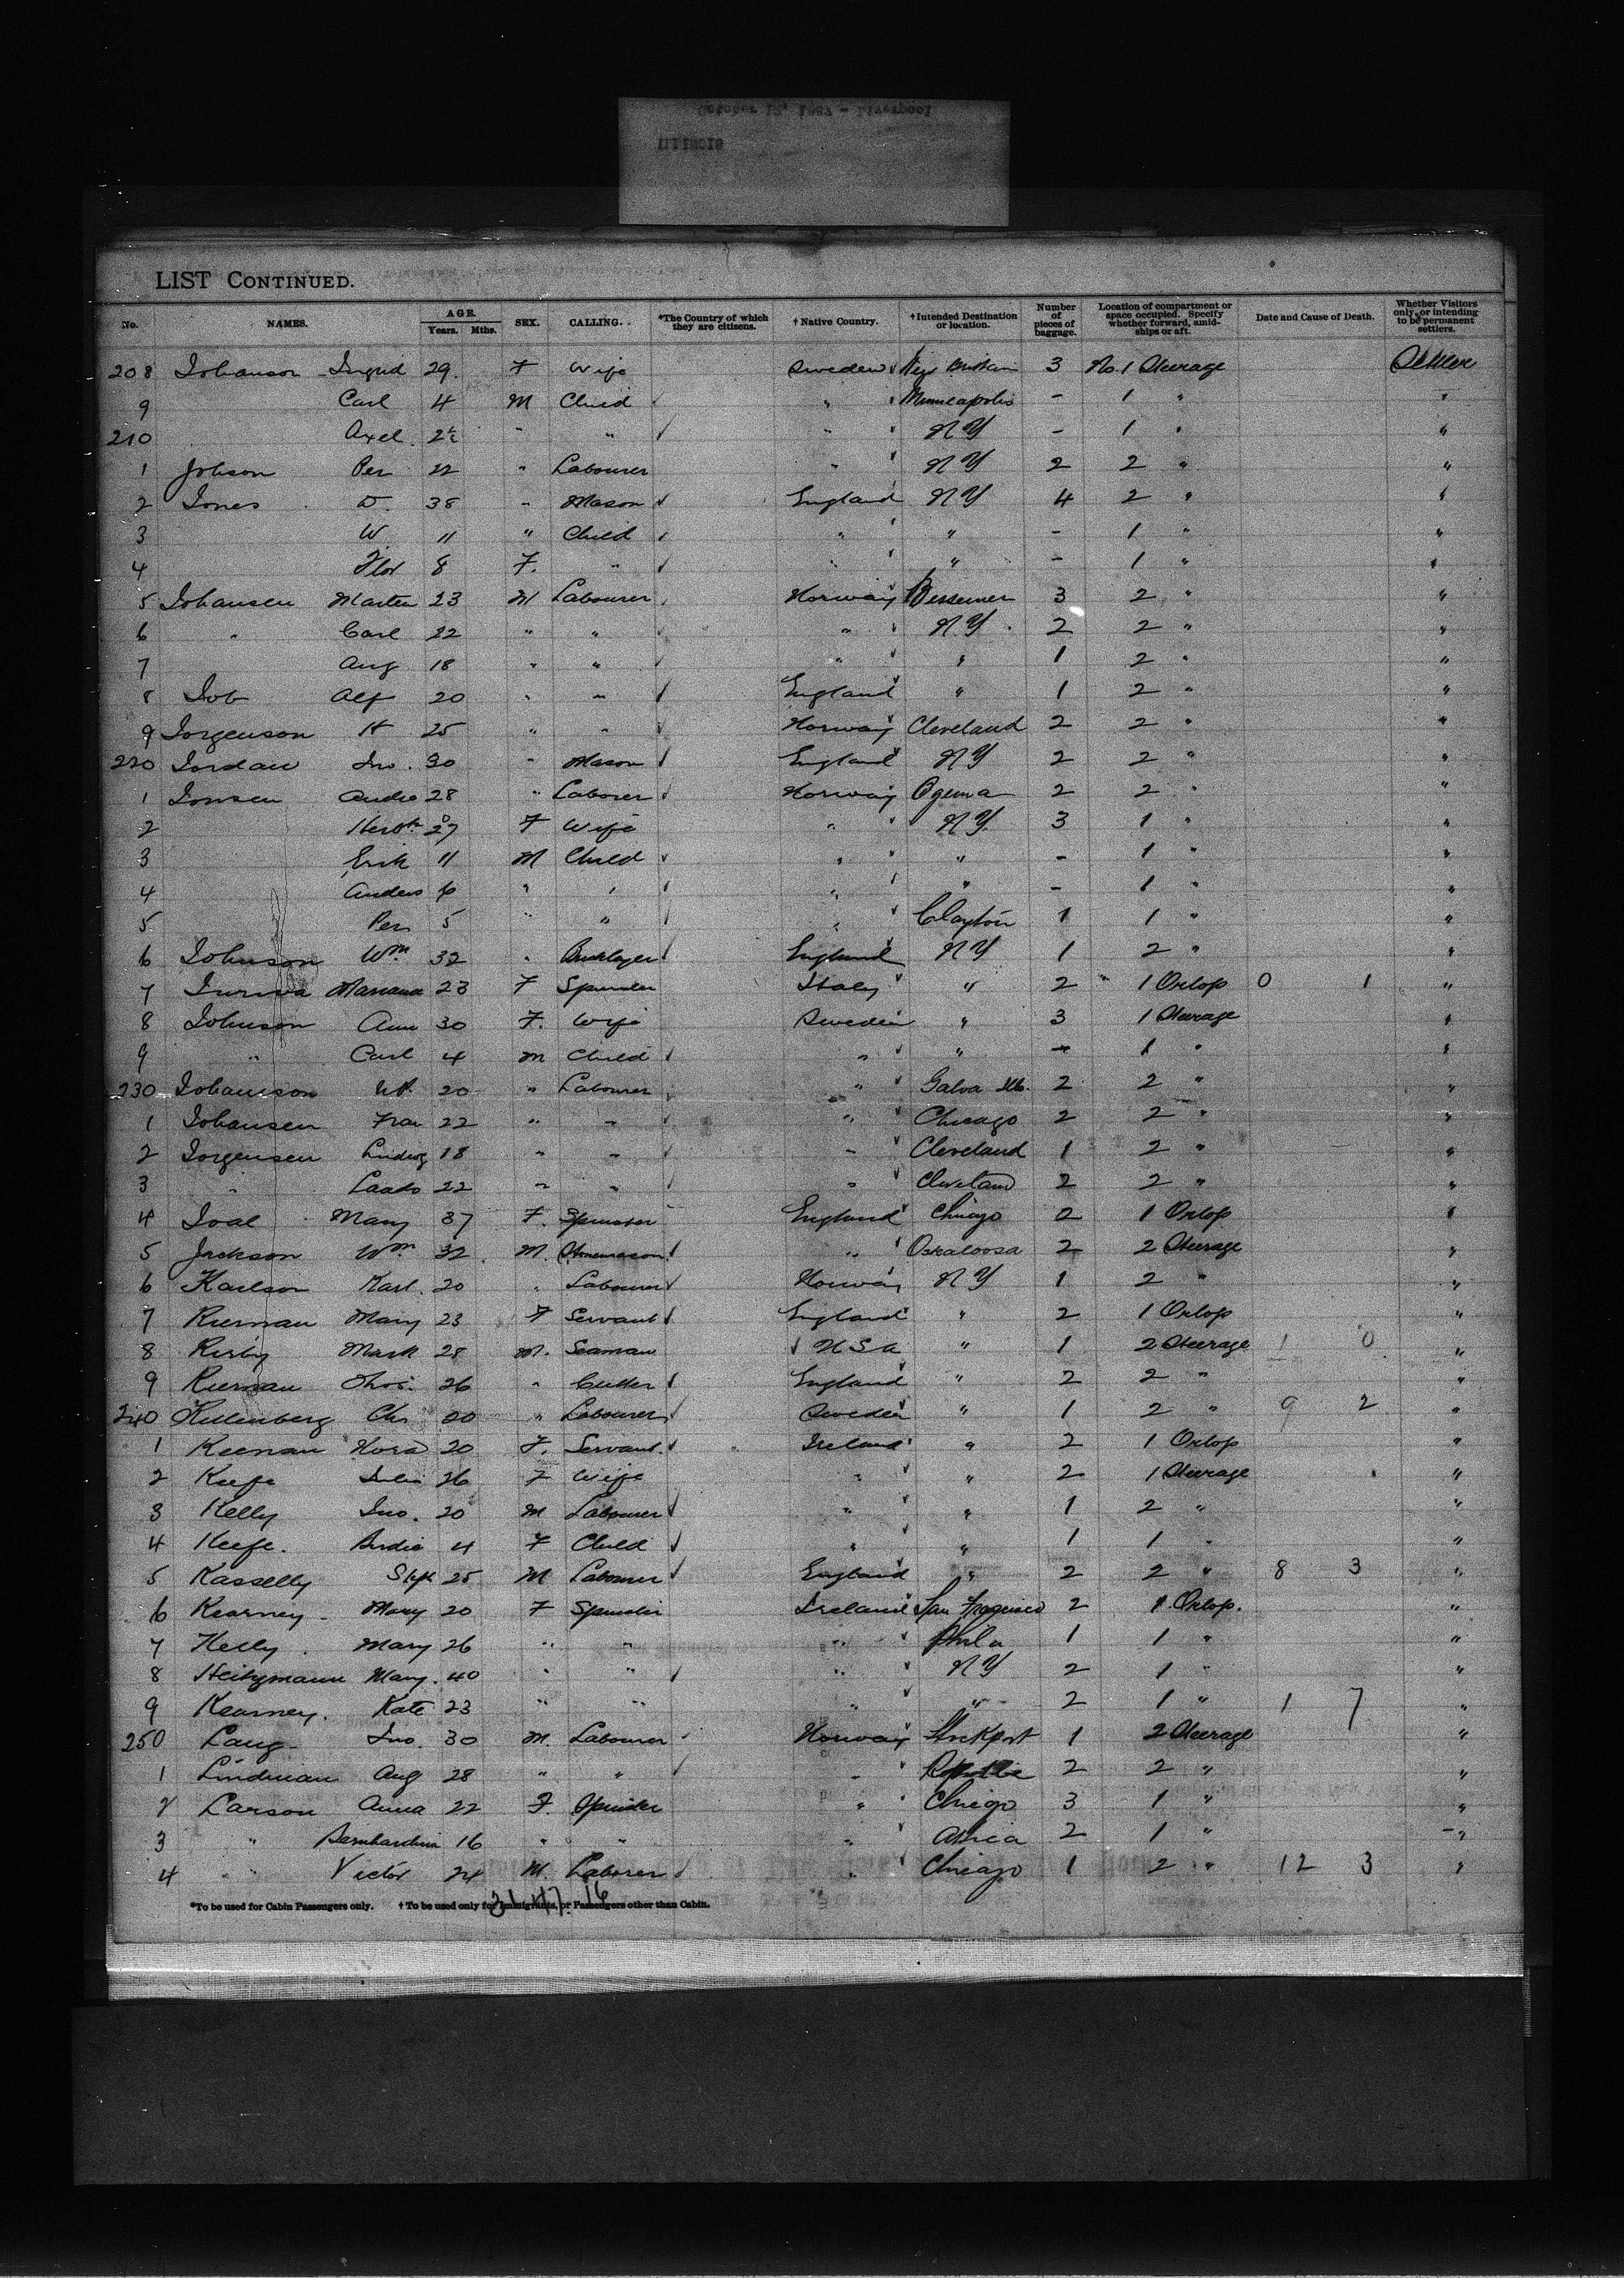 October 12, 1887 - Liverpool
ILLINOIS
LIST CONTINUED.
No. NAMES. AGE. Years. Mths. SEX. CALLING. *The Country of which they are citizens. †Native Country. †Intended Destination or location. Number of pieces of baggage. Location of compartment or space occupied. Specify whether forward, amidships or aft. Date and Cause of Death. Whether Visitors only, or intending to be permanent settlers.
208 Johanson Ingrid 29. F Wife Sweden New Britain 3 No. 1 Steerage Settler
9 Carl 4 M Child " Minneapolis - 1 " "
210 Axel 2½ " " " NY - 1 " "
1 Johson Per 22 " Labourer " NY 2 2 " "
2 Jones D. 38 " Mason England NY 4 2 " "
3 W. 11 " Child " " - 1 " "
4 Flor 8 F. " " " - 1 " "
5 Johansen Marten 23 M Labourer Norway Bessemer 3 2 " "
6 " Carl 22 " " " NY. 2 2 " "
7 Aug 18 " " " " 1 2 " "
8 Job Alf 20 " " England " 1 2 " "
9 Jorgenson H 25 " " Norway Cleveland 2 2 " "
220 Jordan Jno. 30 " Mason England NY 2 2 " "
1 Jonsen Andre 28 " Laborer Norway Ogema 2 2 " "
2 27 F Wife " NY. 3 1 " "
3 Erik 11 M Child " " - 1 " "
4 Anders 6 " " " " - 1 " "
5 Per 5 " " " Clayton 1 1 " "
6 Johnson Wm 32 " Bricklayer England NY 1 2 " "
7 23 F Spinster Italy " 2 " 1 Orlop 0 1 "
8 Johnson Ann 30 F. Wife Sweden " 3 1 Steerage "
9 " Carl 4 M Child " " - 1 " "
230 Johanson 20 " Labourer " Galva Ills. 2 2 " "
1 Johansen Fran 22 " " " Chicago 2 2 " "
2 Jorgensen Ludwig 18 " " " Cleveland 1 2 " "
3 " 22 " " " Cleveland 2 2 " "
4 Joal Mary 37 F. Spinster England Chicago 2 1 Orlop "
5 Jackson Wm 32 M. Stonemason " Oskaloosa 2 2 Steerage "
6 Karlson Karl. 20 " Labourer Norway NY 1 2 " "
7 Kiernan Mary 23 F Servant England " 2 1 Orlop "
8 Kirby Mark 28 M. Seaman USA " 1 2 Steerage 1 0 "
9 Kiernan Thos. 26 " Cutter England " 2 2 " "
240 Killenberg Chr 20 " Labourer Sweden " 1 2 " 9 2 "
1 Keenan Nora 20 F. Servant. Ireland " 2 1 Orlop "
2 Keefe Julia 26 F Wife " " 2 1 Steerage "
3 Kelly Jno. 20 M Labourer " " 1 2 " "
4 Keefe. 4 F Child " " 1 1 " "
5 Kasselly Steph 25 M Labourer England " 2 2 " 8 3 "
6 Kearney - Mary 20 F Spinster Ireland San Francisco 2 1 Orlop. "
7 Kelly. Mary 26 " " " Phila 1 1 " "
8 Heitzmann Mary. 40 " " " NY 2 1 " "
9 Kearney. Kate 23 " " " " 2 1 " 1 7 "
250 Lang Jno. 30 M. Labourer Norway Stockport 1 2 Steerage "
1 Lindman Aug 28 " " " 2 2 " "
2 Larson Anna 22 F. Spinster " Chicago 3 1 " "
3 " Bernhardina 16 " " " 2 1 " "
4 " Victor 24 M. Laborer " Chicago 1 2 " 12 3 "
*To be used for Cabin Passengers only. †To be used only for Immigrants, or Passengers other than Cabin.
31 47. 16